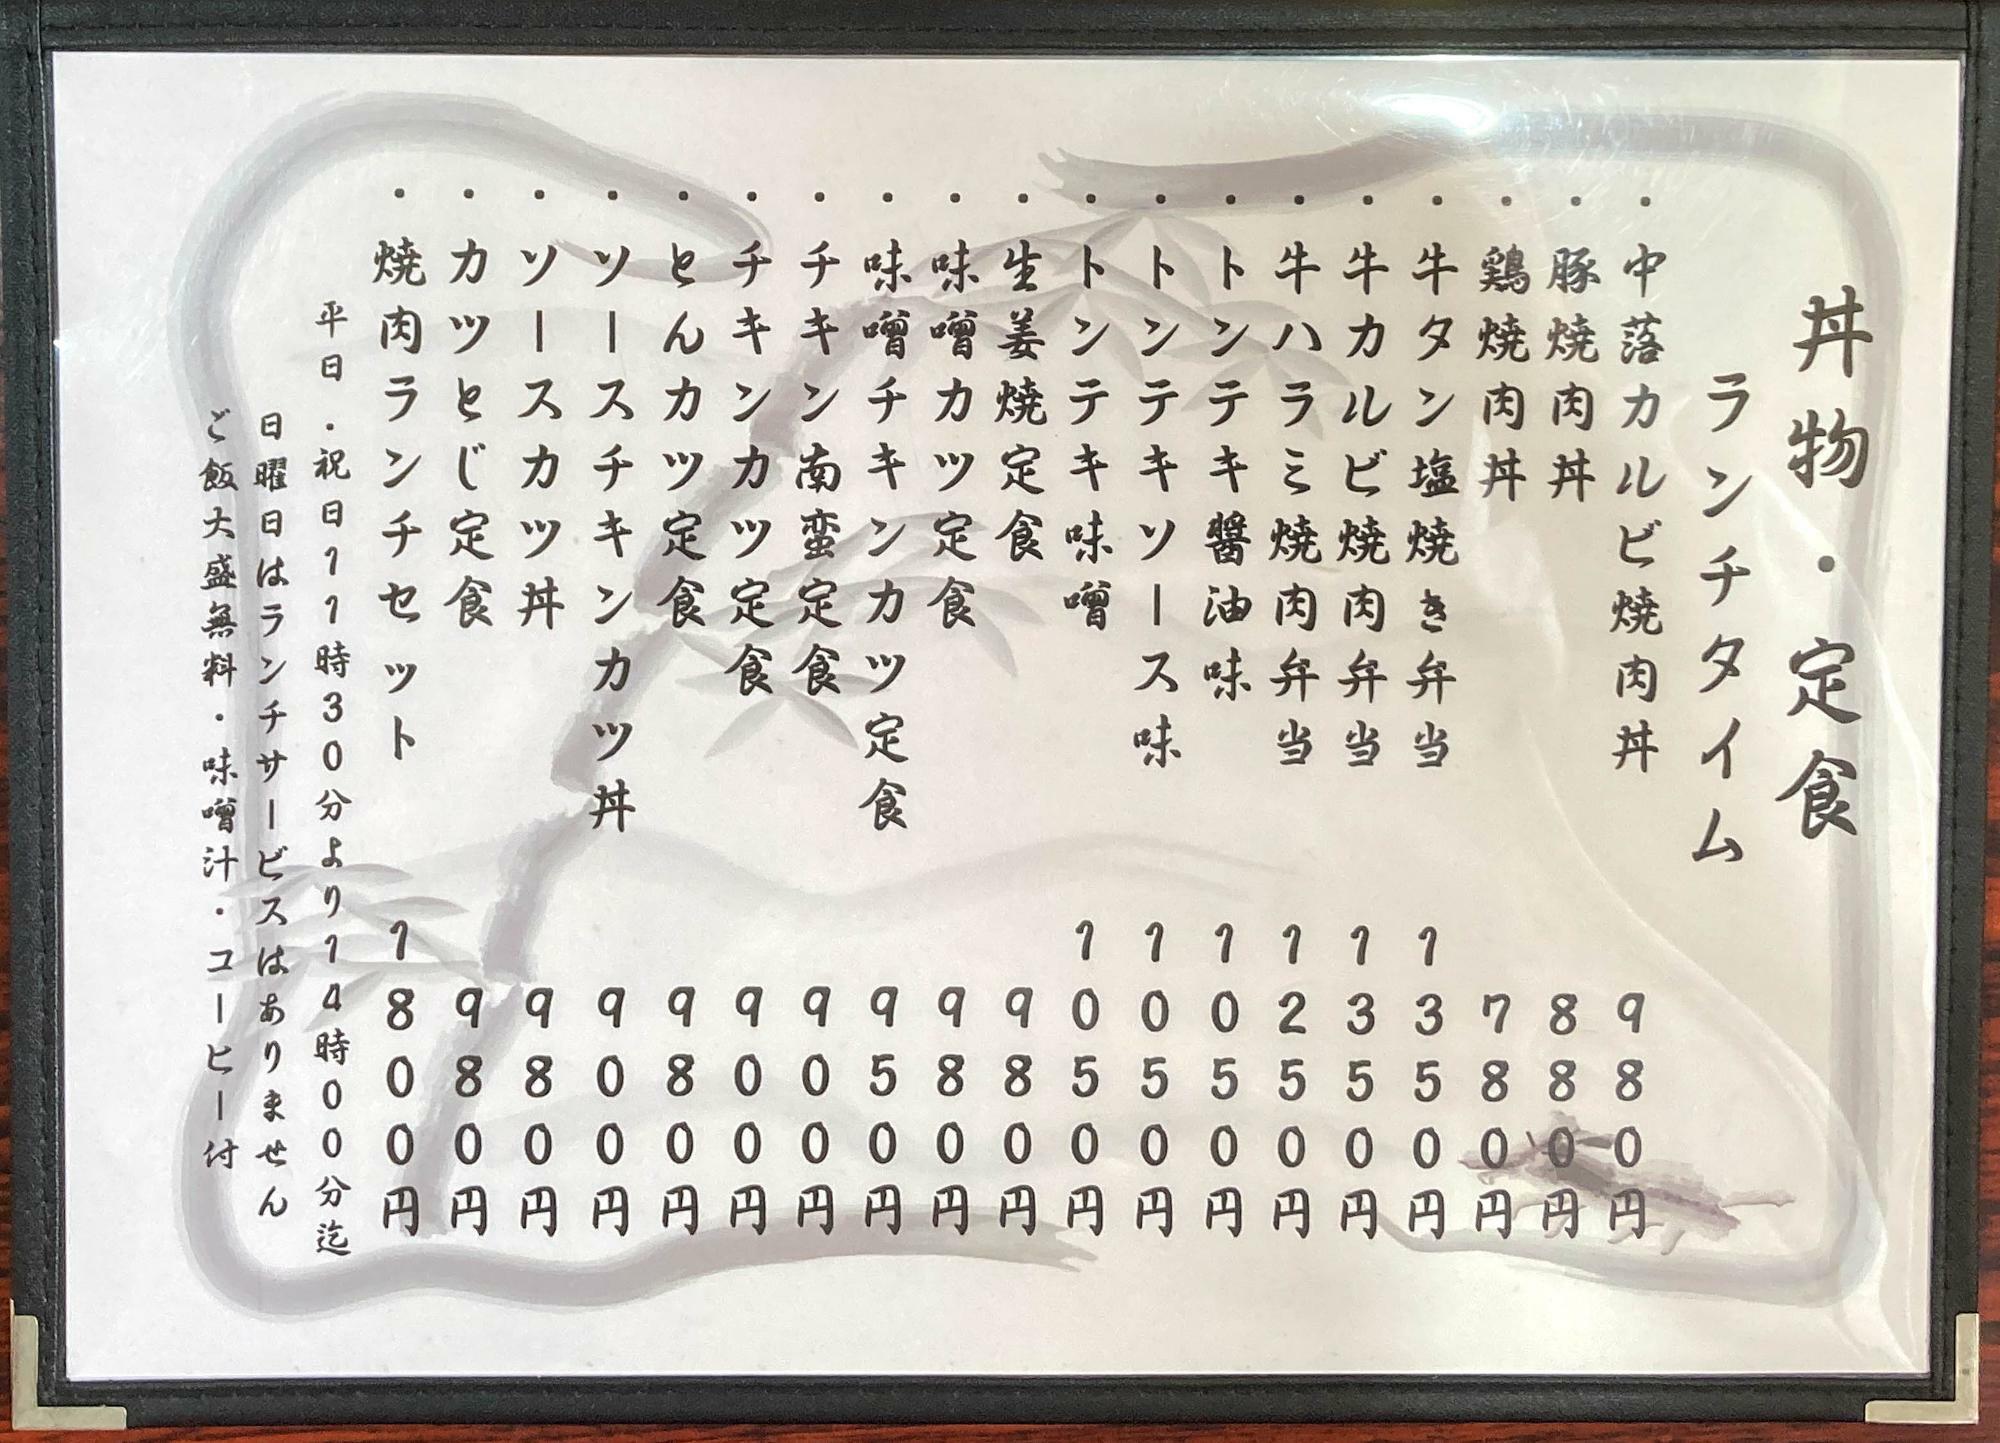 丼物・定食
ランチタイム
・中落カルビ焼肉丼 980円
・豚焼肉丼 880円
・鶏焼肉丼 780円
・牛タン塩焼き弁当 1350円
・牛カルビ焼肉弁当 1350円
・牛ハラミ焼肉弁当 1250円
・トンテキ醤油味 1050円
・トンテキソース味 1050円
・トンテキ味噌 1050円
・生姜焼定食 980円
・味噌カツ定食 980円
・味噌チキンカツ定食 950円
・チキン南蛮定食 900円
・チキンカツ定食 900円
・とんカツ定食 980円
・ソースチキンカツ丼 900円
・ソースカツ丼 980円
・カツとじ定食 980円
・焼肉ランチセット 1800円
平日・祝日11時30分より14時00分迄
日曜日はランチサービスはありません
ご飯大盛無料・味噌汁・コーヒー付